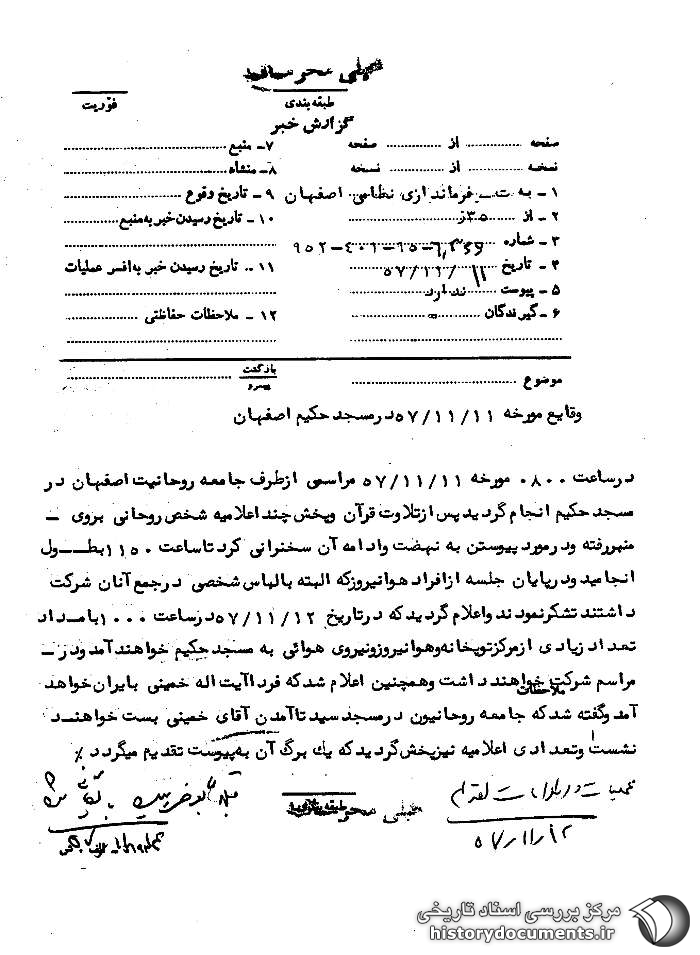 خیلی محرمانه
طبقه‌بندی
فوریت
گزارش خبر
صفحه ............ از ............ صفحه
نسخه ............ از ............ نسخه
۱ - به ت - فرمانداری نظامی اصفهان
۲ - از ۳۵ز
۳ - شماره
۴ - تاریخ ۵۷/۱۱/۱۱
۵ - پیوست ندارد
۶ - گیرندگان
۷ - منبع
۸ - منشاء
۹ - تاریخ وقوع
۱۰ - تاریخ رسیدن خبر به‌منبع
۱۱ - تاریخ رسیدن خبر به‌افسر عملیات
۱۲ - ملاحظات حفاظتی
موضوع
بازگشت
پیرو
وقایع مورخه ۵۷/۱۱/۱۱ درمسجد حکیم اصفهان
درساعت ۰۸۰۰ مورخه ۵۷/۱۱/۱۱ مراسمی ازطرف جامعه روحانیت اصفهان در
مسجد حکیم انجام گردید پس ازتلاوت قرآن وپخش چند اعلامیه شخص روحانی بروی -
منبررفته ودرمورد پیوستن به نهضت وادامه آن سخنرانی کرد تاساعت ۱۱۵۰ بطـــول
انجامید ودرپایان جلسه ازافراد هوانیروزکه البته بالباس شخصی درجمع آنان شرکت
داشتند تشکرنمودند واعلام گردید که درتاریخ ۵۷/۱۱/۱۲ درساعت ۱۰۰۰ بامداد
تعداد زیادی ازمرکزتوپخانه‌وهوانیروزونیروی هوائی به مسجد حکیم خواهند آمد ودر -
مراسم شرکت خواهند داشت وهمچنین اعلام شد که فردا آیت اله خمینی بایران خواهد
ملاحظات
آمد وگفته شد که جامعه روحانیون درمسجد سید تاآمدن آقای خمینی بست خواهنـــد
نشست وتعدادی اعلامیه نیزپخش گردید که یك برگ آن به‌پیوست تقدیم میگردد ٪
طبقه‌بندی
خیلی محرمانه
۵۷/۱۱/۱۲
مرکز بررسی اسناد تاریخی
historydocuments.ir